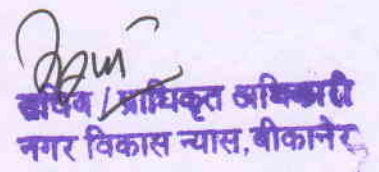 सचिव / प्राधिकृत अधिकारी
नगर विकास न्यास, बीकानेर